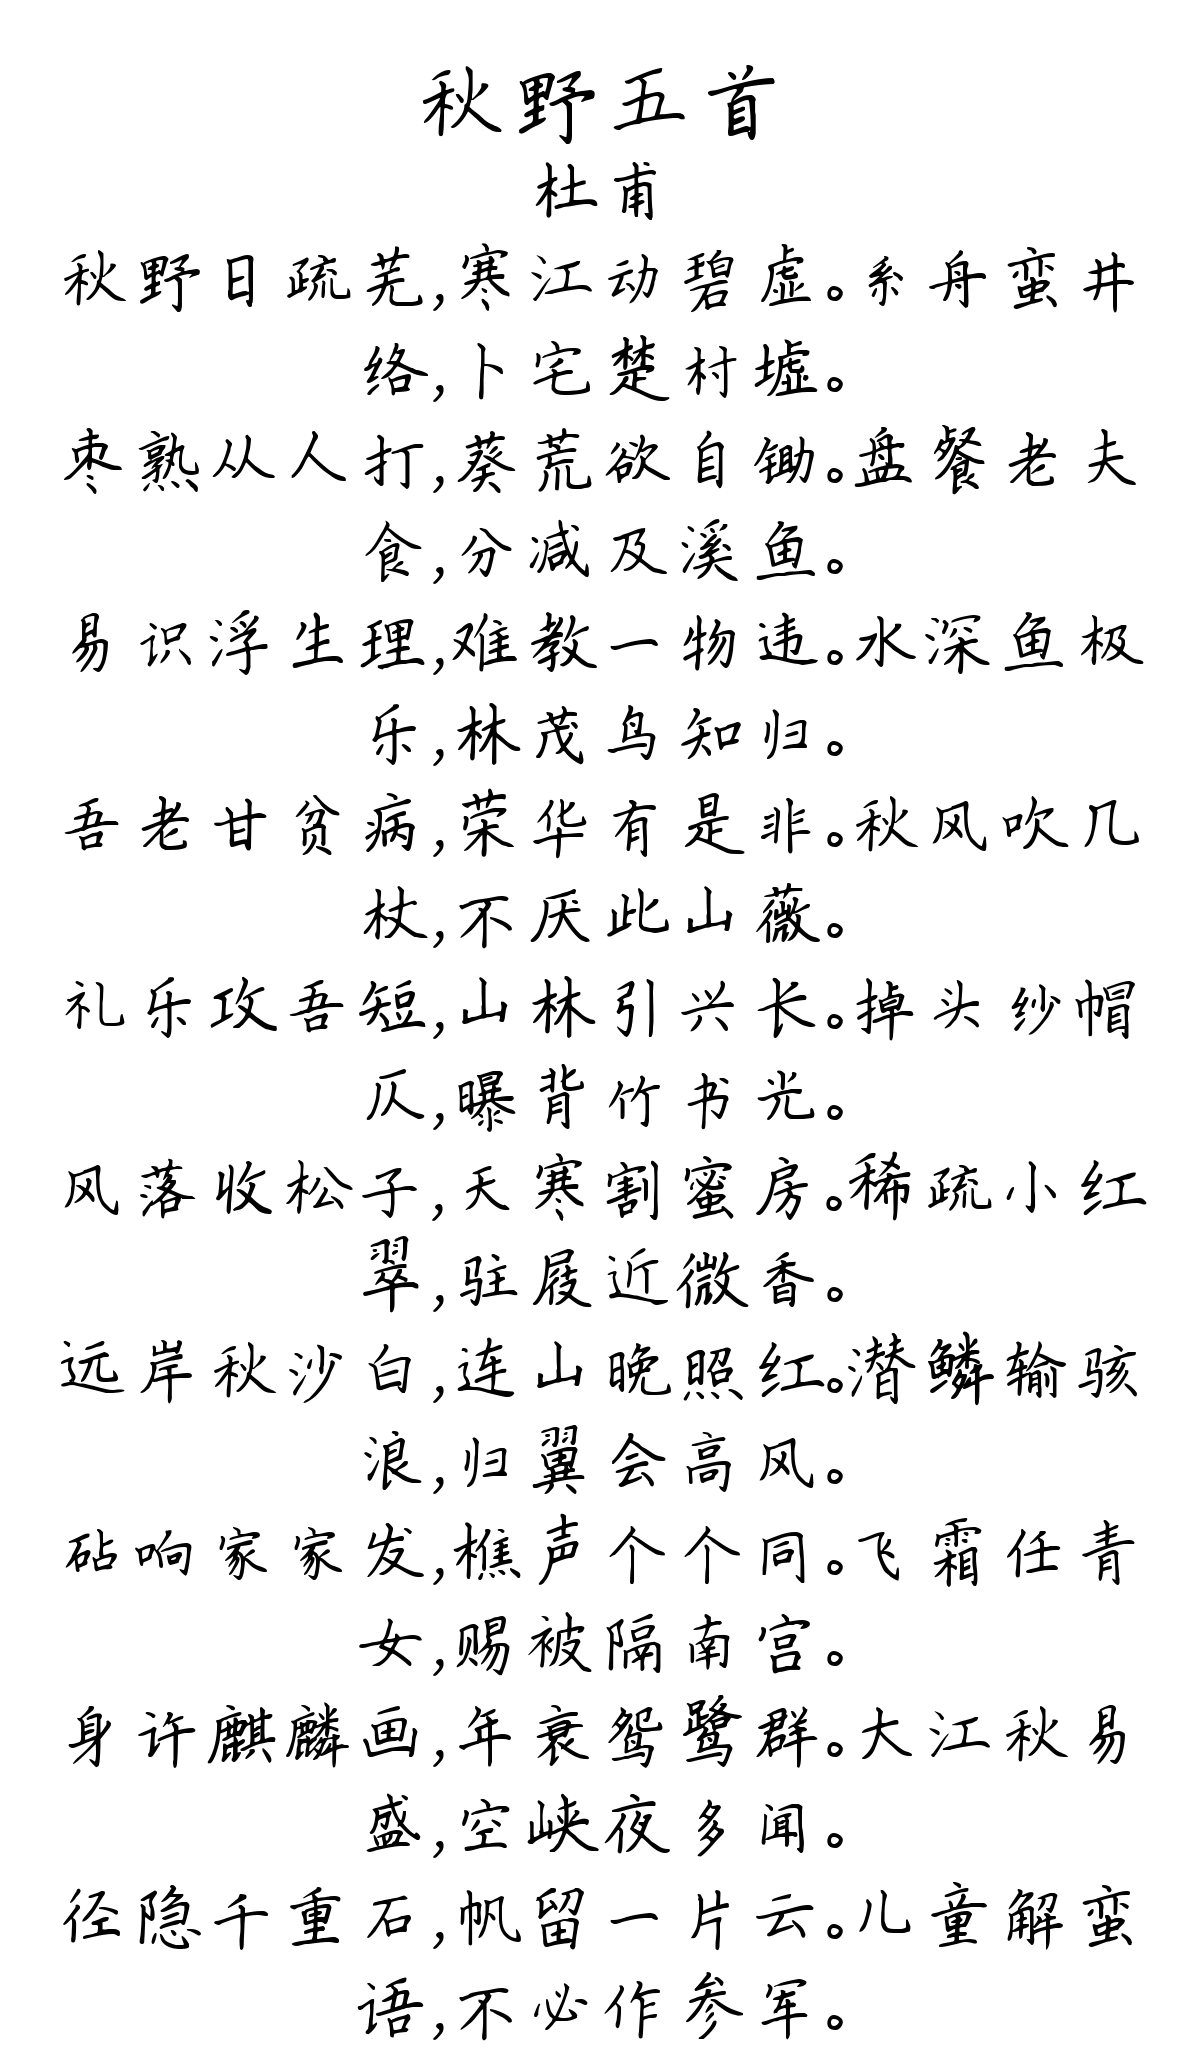 秋野五首
杜甫
秋野日疏芜,寒江动碧虚。系舟蛮井
络,卜宅楚村墟。
枣熟从人打,葵荒欲自锄。盘餐老夫
食,分减及溪鱼。
易识浮生理,难教一物违。水深鱼极
乐,林茂鸟知归。
吾老甘贫病,荣华有是非。秋风吹几
杖,不厌此山薇。
礼乐攻吾短,山林引兴长。掉头纱帽
仄,曝背竹书光。
风落收松子,天寒割蜜房。稀疏小红
翠,驻屐近微香。
远岸秋沙白,连山晚照红。潜鳞输骇
浪,归翼会高风。
砧响家家发,樵声个个同。飞霜任青
女,赐被隔南宫。
身许麒麟画,年衰鸳鹭群。大江秋易
盛,空峡夜多闻。
径隐千重石,帆留一片云。儿童解蛮
语,不必作参军。